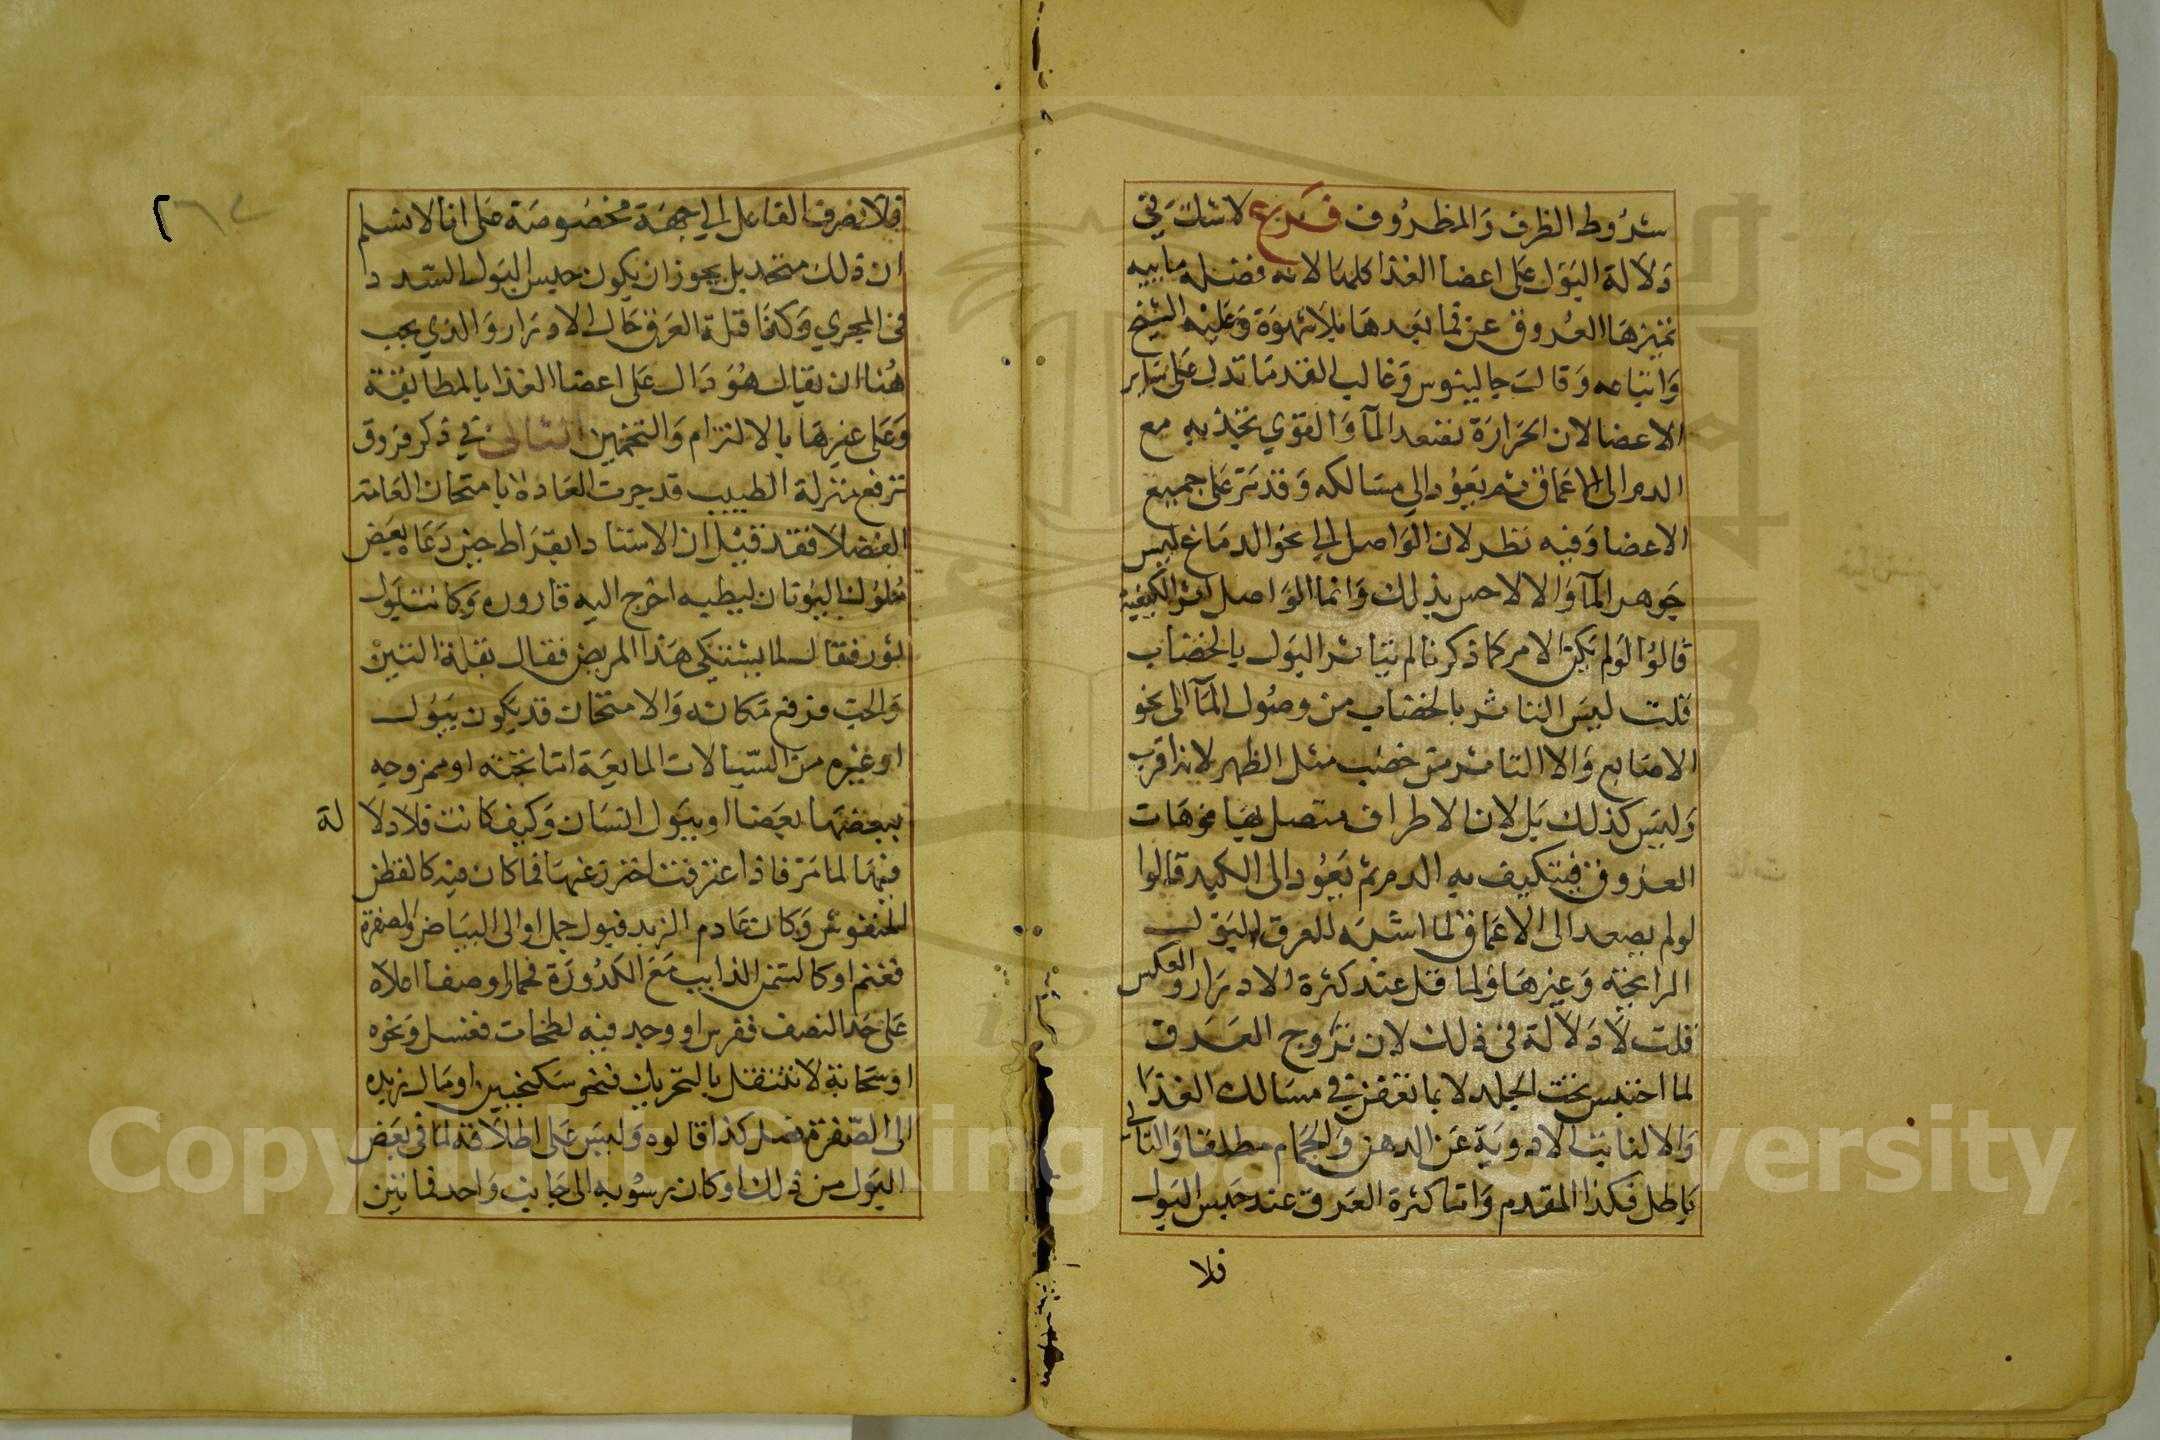 شروط الظرف والمظروف فرع لا شك في
دلالة البول على اعضا الغذا كلها لانه فضلة مابيه
تميزها العروق عن قما بعدها بلا شهوة وعليه الشيخ
واتباعه وقالت جالينوس وغالب القدما تدل على ساير
الاعضا لان الحرارة تصعد المآ والقوي تجذبه مع
الدم الى الاعماق ثم يعود الي مسالكه وقد مر على جميع
الاعضا وفيه نظر لان الواصل الي نحو الدماغ ليس
جوهر المآ والا لاحس بذلك وانما الواصل اثر الكيفية
قالوا لو لم يكن الامر كما ذكرنا لم يتاثر البول بالخضاب
قلت ليس التاثر بالخضاب من وصول المآ الى نحو
الاصابع والا التاثر من خضب مثل الظهر لانه اقرب
وليس كذلك بل لان الاطراف متصل بها فوهات
العروق فيتكيف به الدم ثم يعود الى الكبد قالوا
لو لم يصعد الى الاعماق لما اشبه العرق البول
الرايحة وغيرها ولما قل عند كثرة الادرار والعكس
قلت لا دلالة في ذلك لان خروج العرق
لما احتبس تحت الجلد لا بما نقص في مسالك الغذا
والا لنابت الادوية عن الدهن والحمام مطلقا والتالي
باطل فكذا المقدم واما كثرة العرق عند حبس البول
فلا
فلا يصرف الفاعل الي جهة مخصوصة على انا لا نسلم
ان ذلك متحد بل يجوز ان يكون حبس البول لسدد
في المجري وكذا قلة العرق حال الادرار والذي يجب
هنا ان يقال هو دال على اعضا الغذا بالمطابقة
وعلى غيرها بالالتزام والتخمين الثالث في ذكر فروق
ترفع منزلة الطبيب قد جرت العادة بامتحان العامة
الفضلا فقد قيل ان الاستاد ابقراط حين دعاه بعض
ملوك اليونان ليطبه اخرج اليه قارورة وكانت بول
ثور فقال لما يشتكي هذا المريض فقال بقلة التبن
والحب فرفع مكانه والامتحان قد يكون ببول
او غيره من السيالات المايعة اما بحتة او ممزوجة
ببعضها بعضا او ببول انسان وكيف كانت فلا دلالة
فيها لما مر فاذا عرفت اخبر عنها فما كان فيه كالقطن
المنفوش وكان عادم الزبد فبول جمل او الى البياض والصفرة
فغنم او كالسمن الذايب مع الكدورة فحمار او صفا اعلاه
على حد النصف ففرس او وجد فيه لطخات فعسل ونحوه
او سحابة لا تنتقل بالتحريك فنحو سكنجبين او مال زبده
الى الصفرة فصل كذا قالوه وليس على اطلاقه لما في بعض
البول من ذلك او كان رسوبه الى جانب واحد فماتين